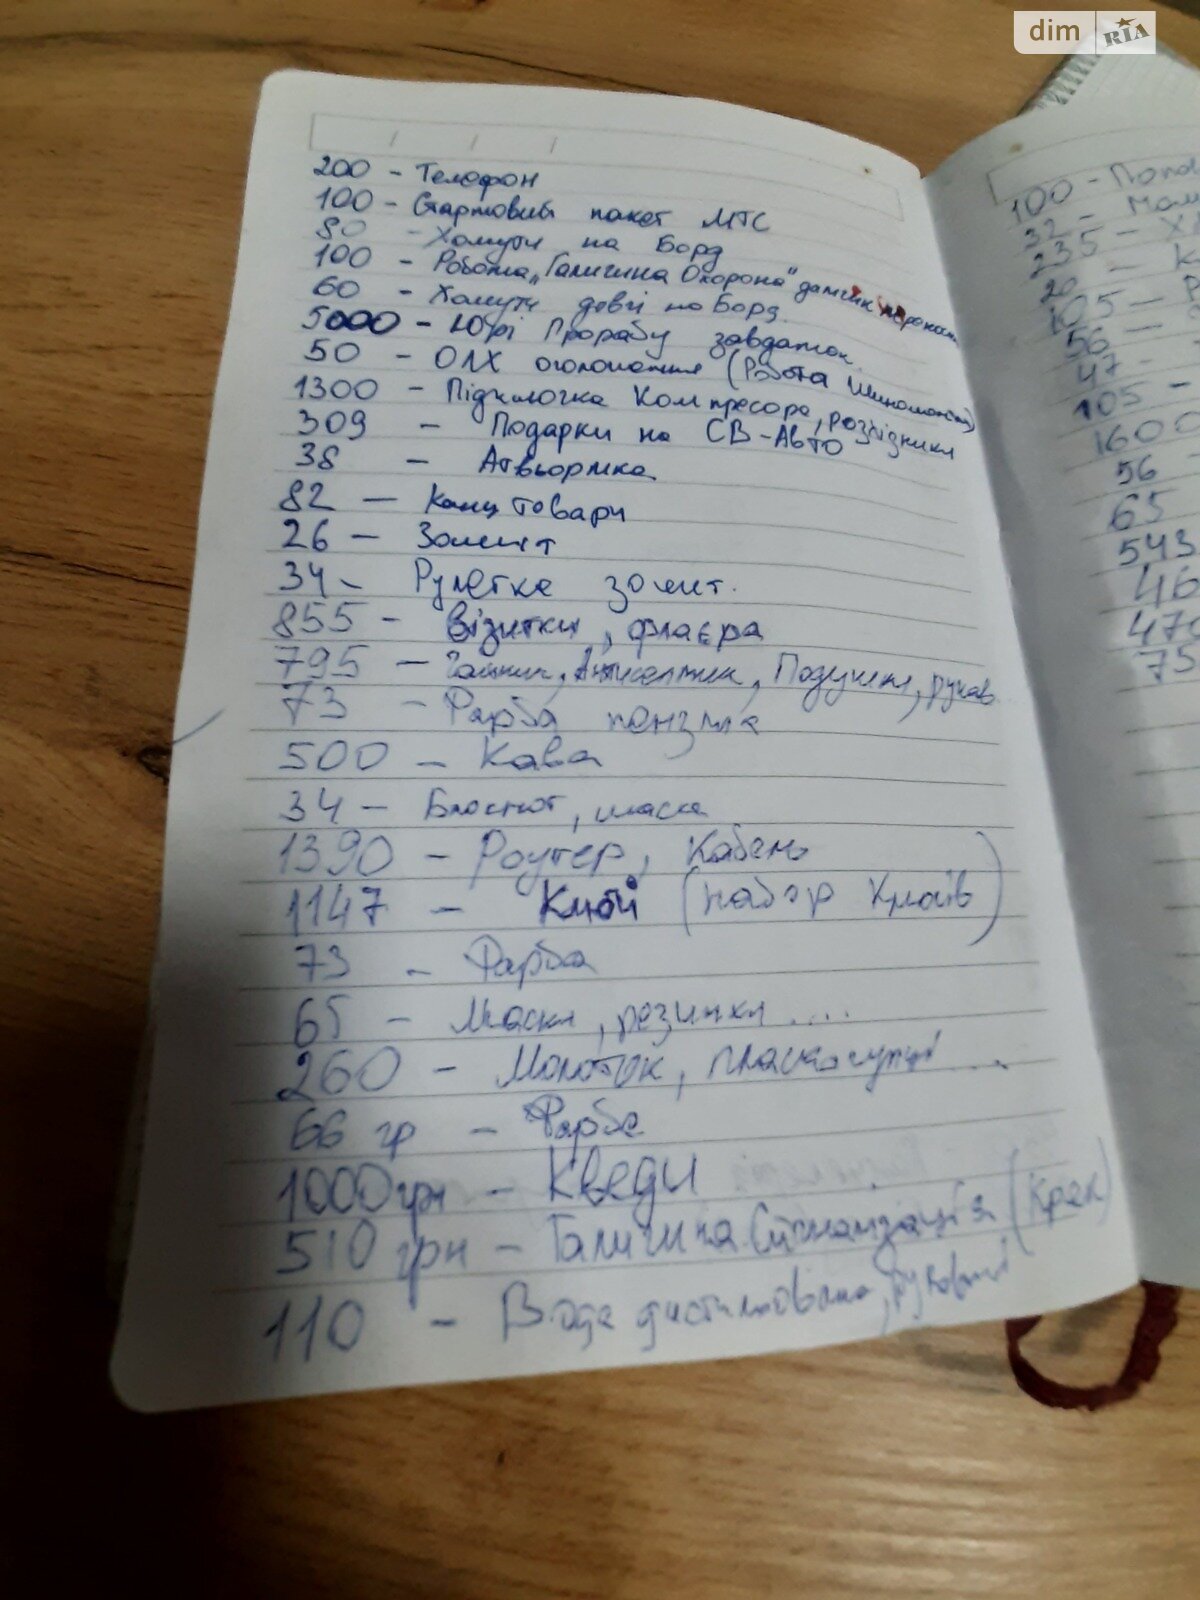 dim RIA
200 - Телефон
100 - Стартовий пакет МТС
80 - Хомути на Борд
100 - Робота „Галичина Охорона"
60 - Хомути довгі на Борд.
5000 - Юрі Прорабу завдаток
50 - ОЛХ оголошення (Робота
1300 - Підклочка Компресора, розхідники
309 - Подарки на СВ-Авто
38 - Атвьортка
82 - Канцтовари
26 - Зошит
34 - Рулетка зошит.
855 - Візитки, флаєра
795 - Антисептик,
73 - Фарба пензля
500 - Кава
34 - Блокнот, маска
1390 - Роутер, Кабель
1147 - Ключі (набор Ключів)
73 - Фарба
65 - Маски, резинки ....
260 - Молоток, пласкогупці ...
66 гр - Фарба
1000 грн - Кведи
510 грн - Галичина Сигналізація (Крек)
110 - Вода дистильована,
100 -
32 -
235 -
20
56
47 -
105 -
1600
56
65
543
46
47
75